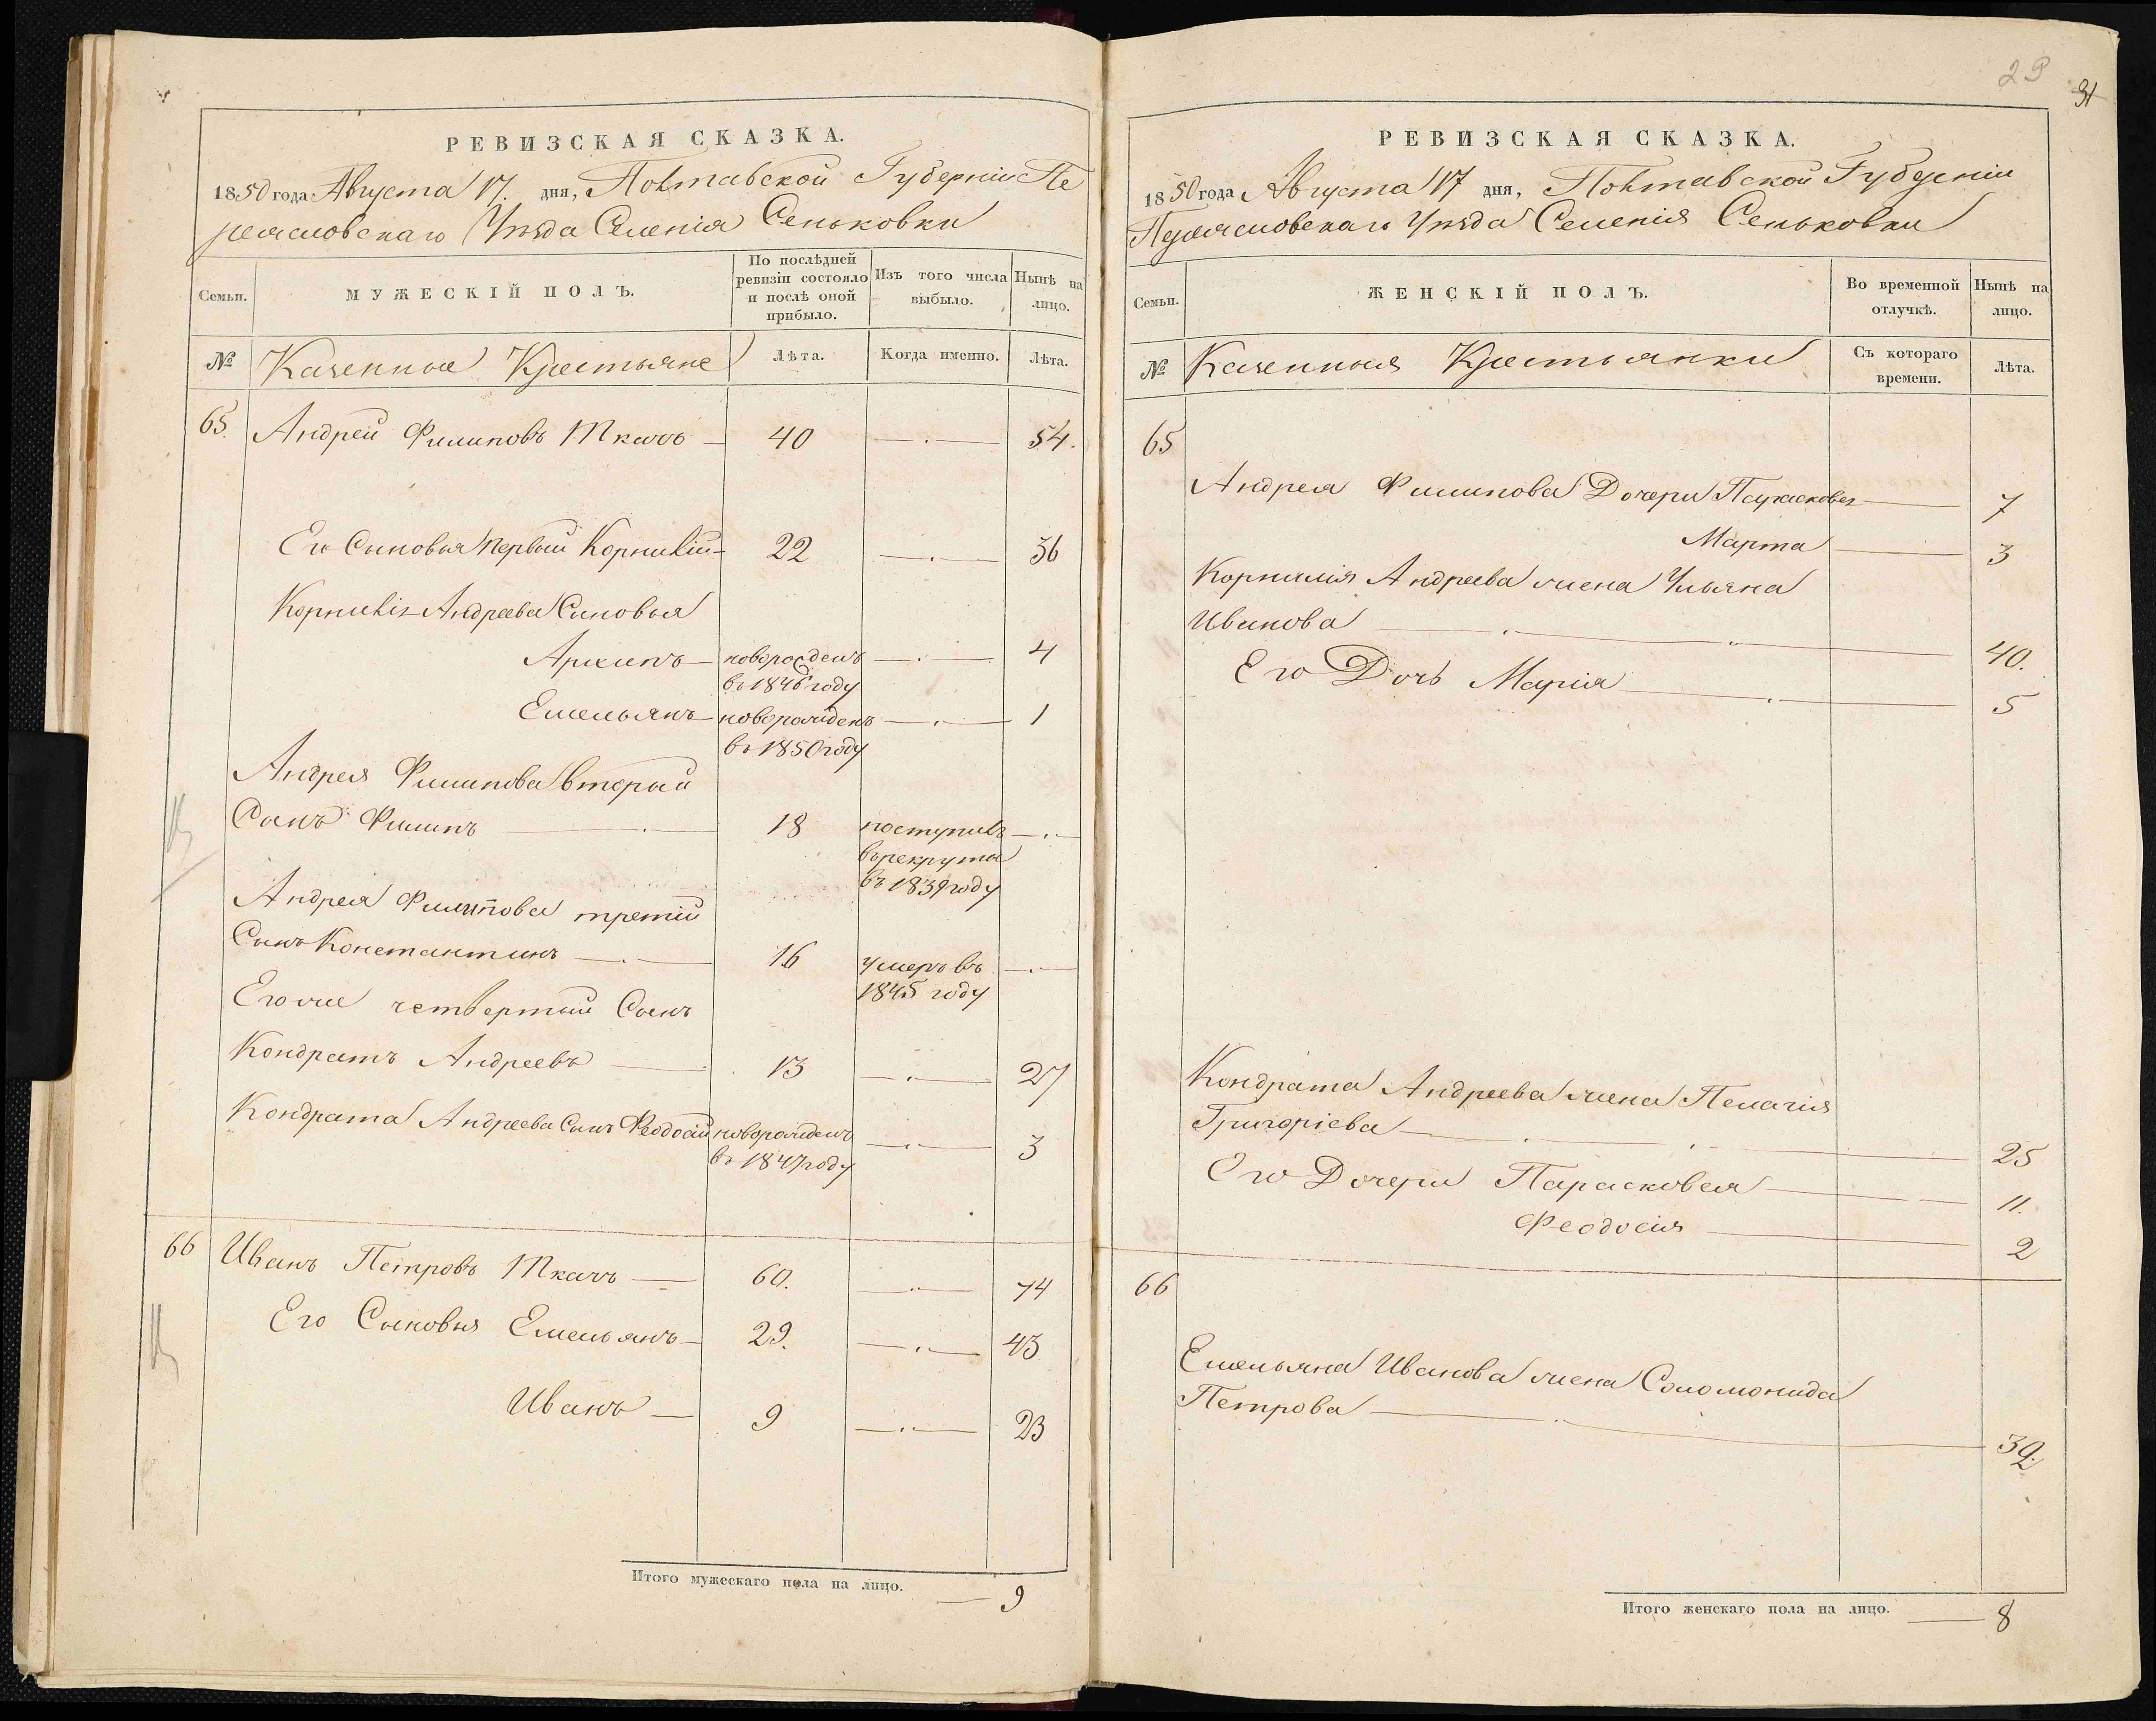 РЕВИЗСКАЯ СКАЗКА.
1850 года Августа 17. дня, Полтавской Губерніи Пе
реяславскаго Уѣзда Селенія Сеньковки
Семьи.
МУЖЕСКІЙ ПОЛЪ.
По послѣдней
ревизіи состояло
и послѣ оной
прибыло.
Изъ того числа
выбыло.
Нынѣ на
лицо.
№
Казенные Крестьяне
Лѣта.
Когда именно.
Лѣта.
65. Андрей Филиповъ Ткачъ — 40 54.
Его Сыновья первый Корнилій — 22 36
Корнилія Андреева Сыновья
Архипъ — новорожденъ 4
въ 1846 году
Емельянъ — новорожденъ 1
въ 1850 году
Андрея Филипова вторый
Сынъ Филипъ 18 поступилъ
въ рекрута
въ 1839 году
Андрея Филипова третій
Сынъ Константинъ 16 умеръ въ
1845 году
Его же четвертый Сынъ
Кондратъ Андреевъ 13 27
Кондрата Андреева Сынъ Феодосій новорожденъ 3
въ 1847 году
66 Иванъ Петровъ Ткачъ — 60. 74
Его Сыновья Емельянъ — 29. 43
Иванъ — 9 23
Итого мужескаго пола на лицо. — 9
29
31
РЕВИЗСКАЯ СКАЗКА.
1850 года Августа 17 дня, Полтавской Губерніи
Переяславскаго Уѣзда Селенія Сеньковки
Семьи.
ЖЕНСКІЙ ПОЛЪ.
Во временной
отлучкѣ.
Нынѣ на
лицо.
№
Казенныя Крестьянки
Съ котораго
времени.
Лѣта.
65
Андрея Филипова Дочери Парасковея — 7
Марта — 3
Корнилія Андреева жена Ульяна
Иванова — 40.
Его Дочь Марія — 5
Кондрата Андреева жена Пелагія
Григоріева — 25
Его Дочери Парасковея — 11.
Феодосія — 2
66
Емельяна Иванова жена Соломонида
Петрова — 39.
Итого женскаго пола на лицо. — 8